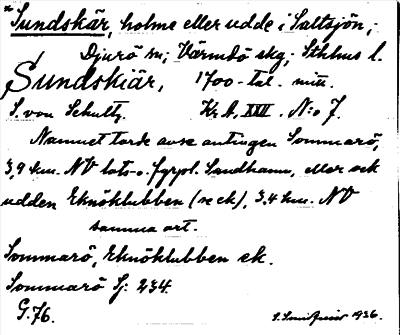 * Sundskär, holme eller udde i Saltsjön,-
Djurö sn; Värmdö skg; Sthlms l.
Sundskiär, 1700-tal. mitt.
S. von Schultz. Kr.A. XXII. N:o 7.
Namnet torde avse antingen Sommarö,
3,9 km. NV lots- o. fyrpl. Sandhamn, eller ock
udden Eknöklubben (se ek), 3.4 km. NV
samma ort.
Sommarö, Eknöklubben ek.
Sommarö Sj: 234.
G.76. 1936.